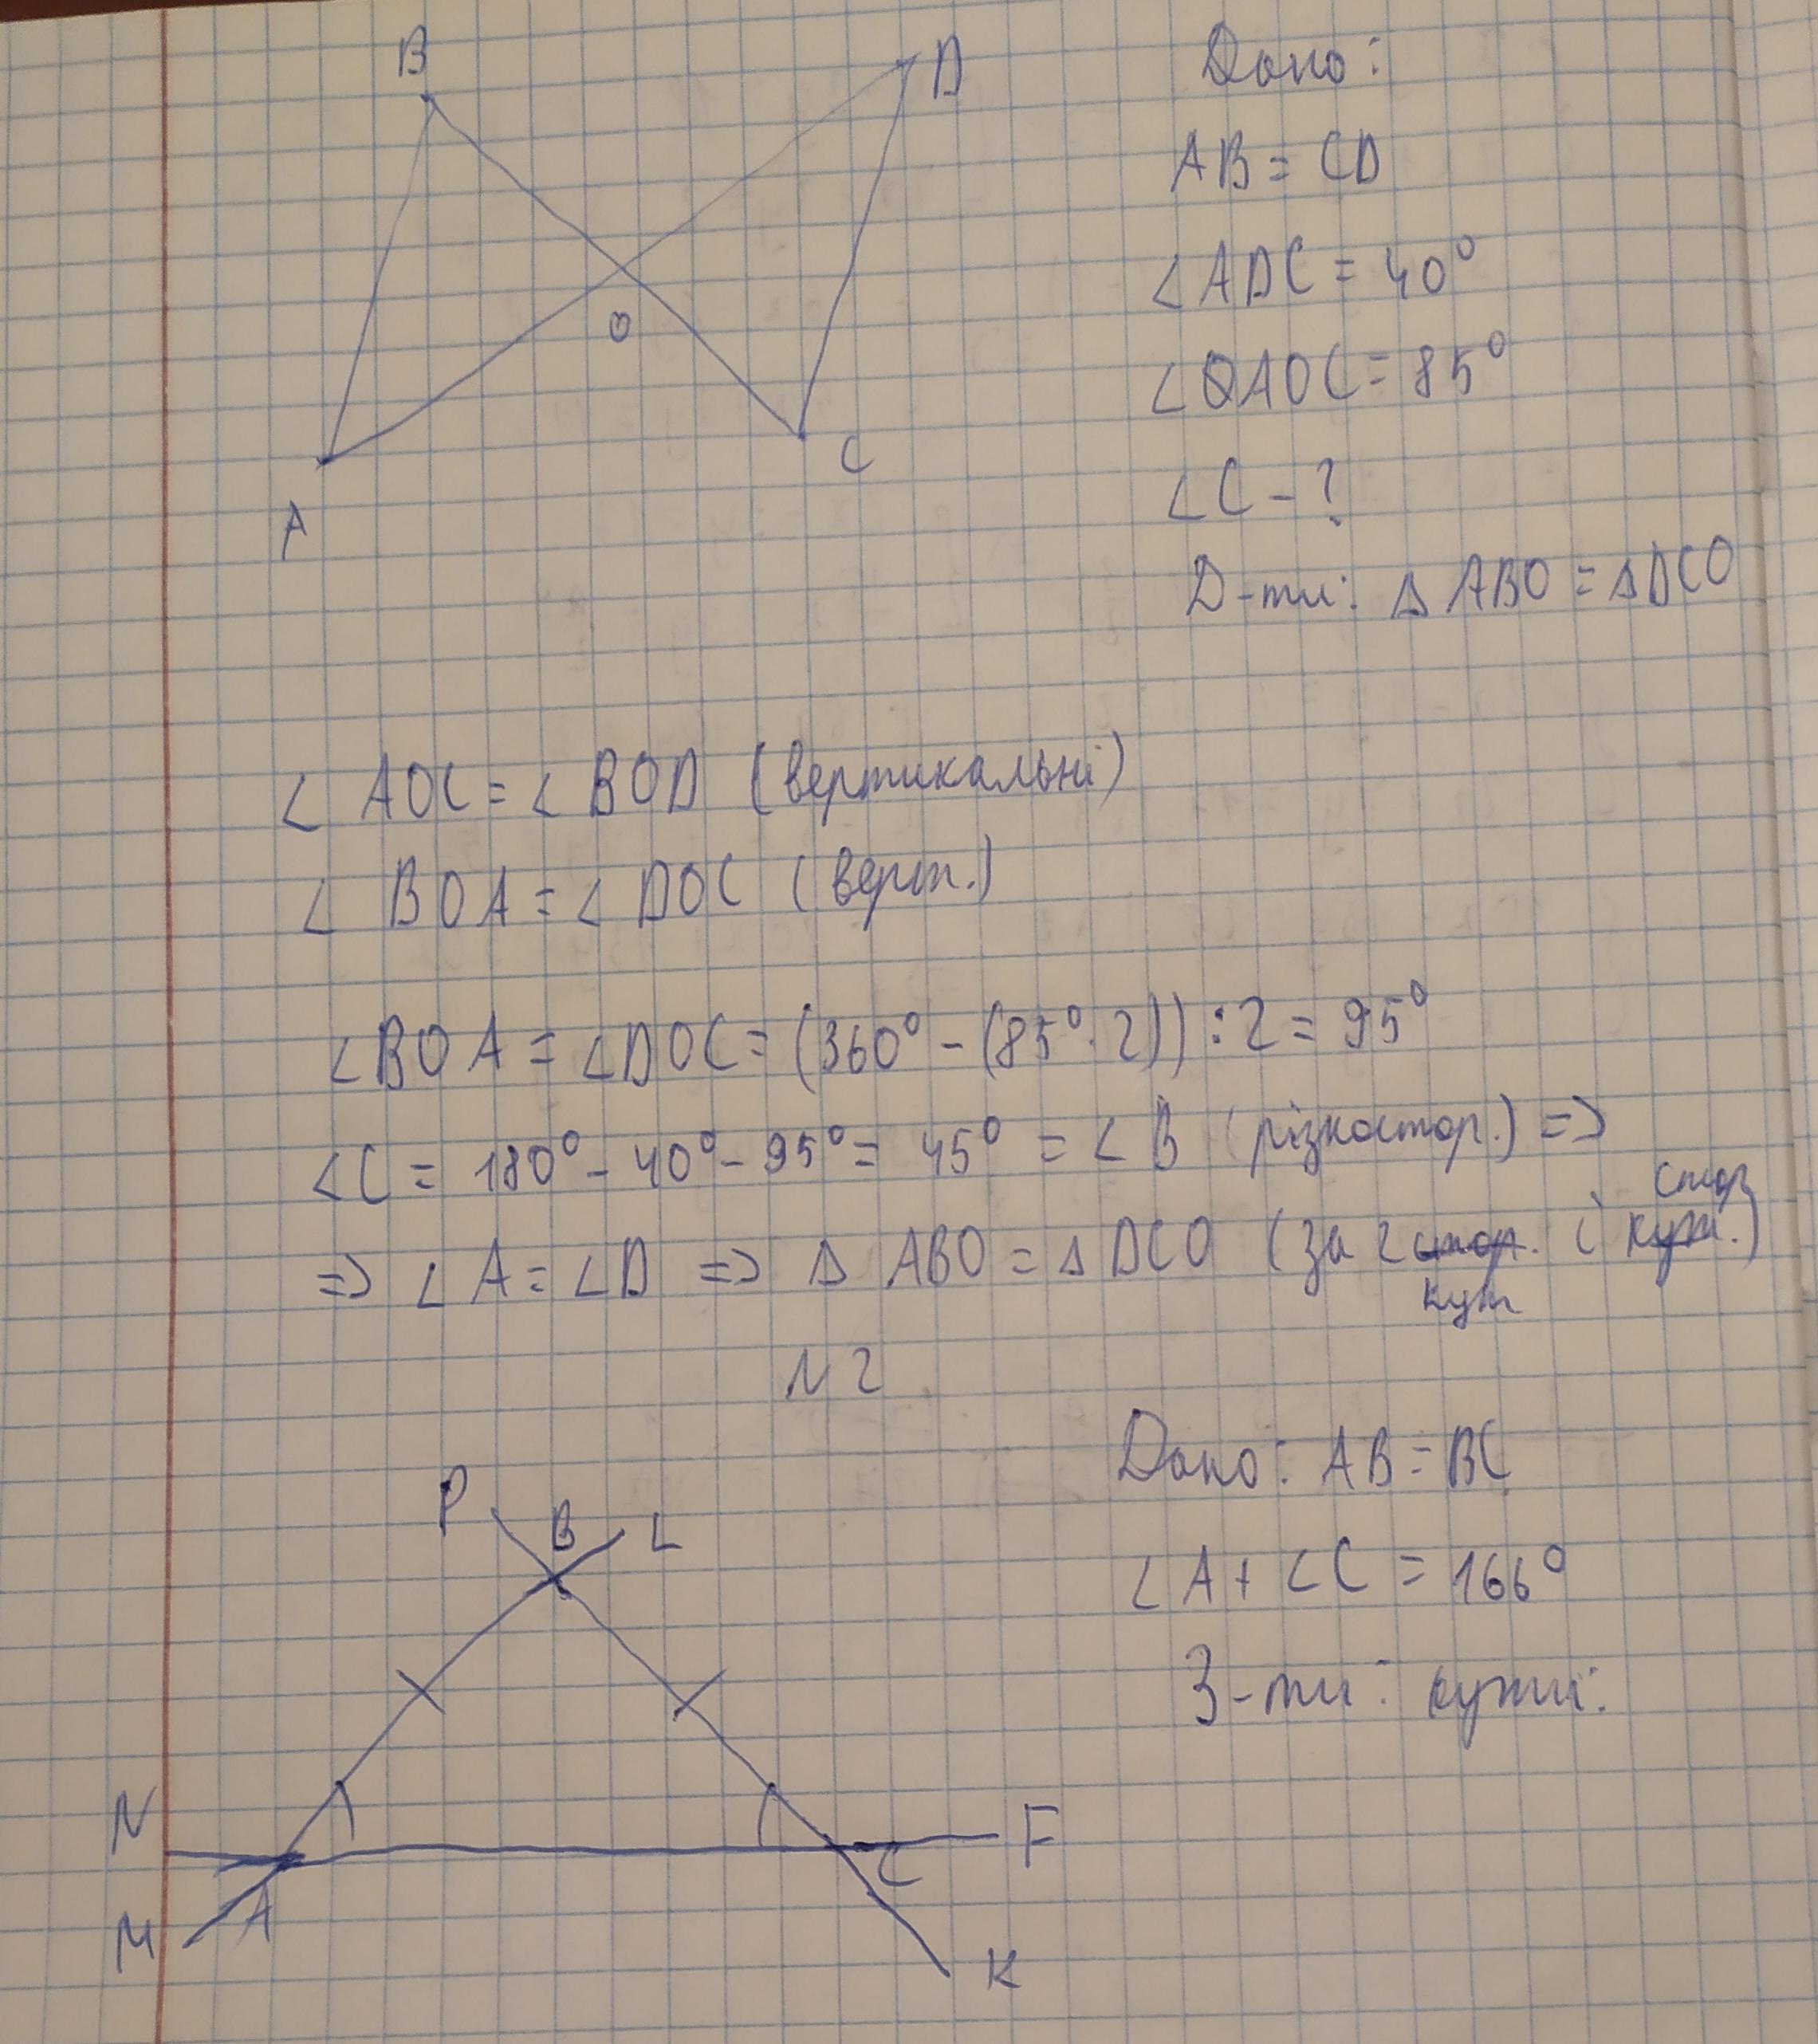 B
D
O
A
C
Дано:
AB = CD
∠ADC = 40°
∠AOC = 85°
∠C - ?
Д-ти: △ ABO = △DCO
∠ AOC = ∠ BOD (вертикальні)
∠ BOA = ∠ DOC (верт.)
∠BOA = ∠DOC = (360° - (85° · 2)) : 2 = 95°
∠C = 180° - 40° - 95° = 45° = ∠B (різностор.) =>
=> ∠A = ∠D => △ ABO = △DCO (за 2 кут і стор)
N2
Дано: AB = BC
∠A + ∠C = 166°
З-ти: кути:
P
B
L
N
M
A
C
F
K